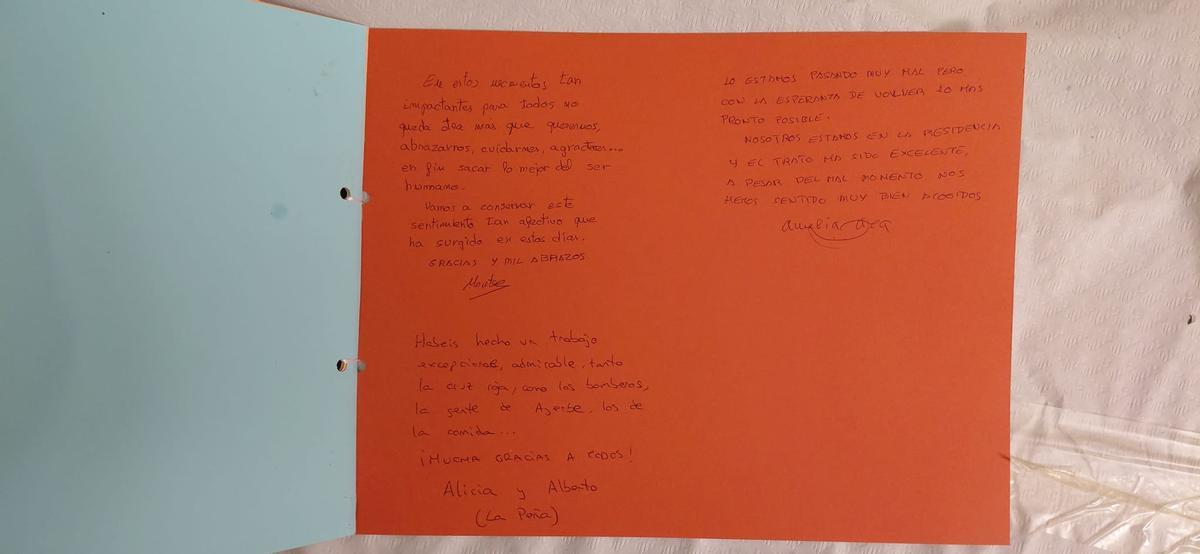 En estos momentos tan
impactantes para todos no
queda otra más que querernos,
abrazarnos, cuidarnos,
en fin sacar lo mejor del ser
humano.
Vamos a conservar este
sentimiento tan afectivo que
ha surgido en estos días.
GRACIAS Y MIL ABRAZOS
Montse
Habeis hecho un trabajo
excepcional, admirable, tanto
la cruz roja, como los bomberos,
la gente de Ayerbe, los de
la comida...
¡MUCHA GRACIAS A TODOS!
Alicia y Alberto
(La Peña)
LO ESTAMOS PASANDO MUY MAL PERO
CON LA ESPERANZA DE VOLVER LO MAS
PRONTO POSIBLE.
NOSOTROS ESTAMOS EN LA RESIDENCIA
Y EL TRATO HA SIDO EXCELENTE,
A PESAR DEL MAL MOMENTO NOS
HEMOS SENTIDO MUY BIEN ACOGIDOS
Aurelia